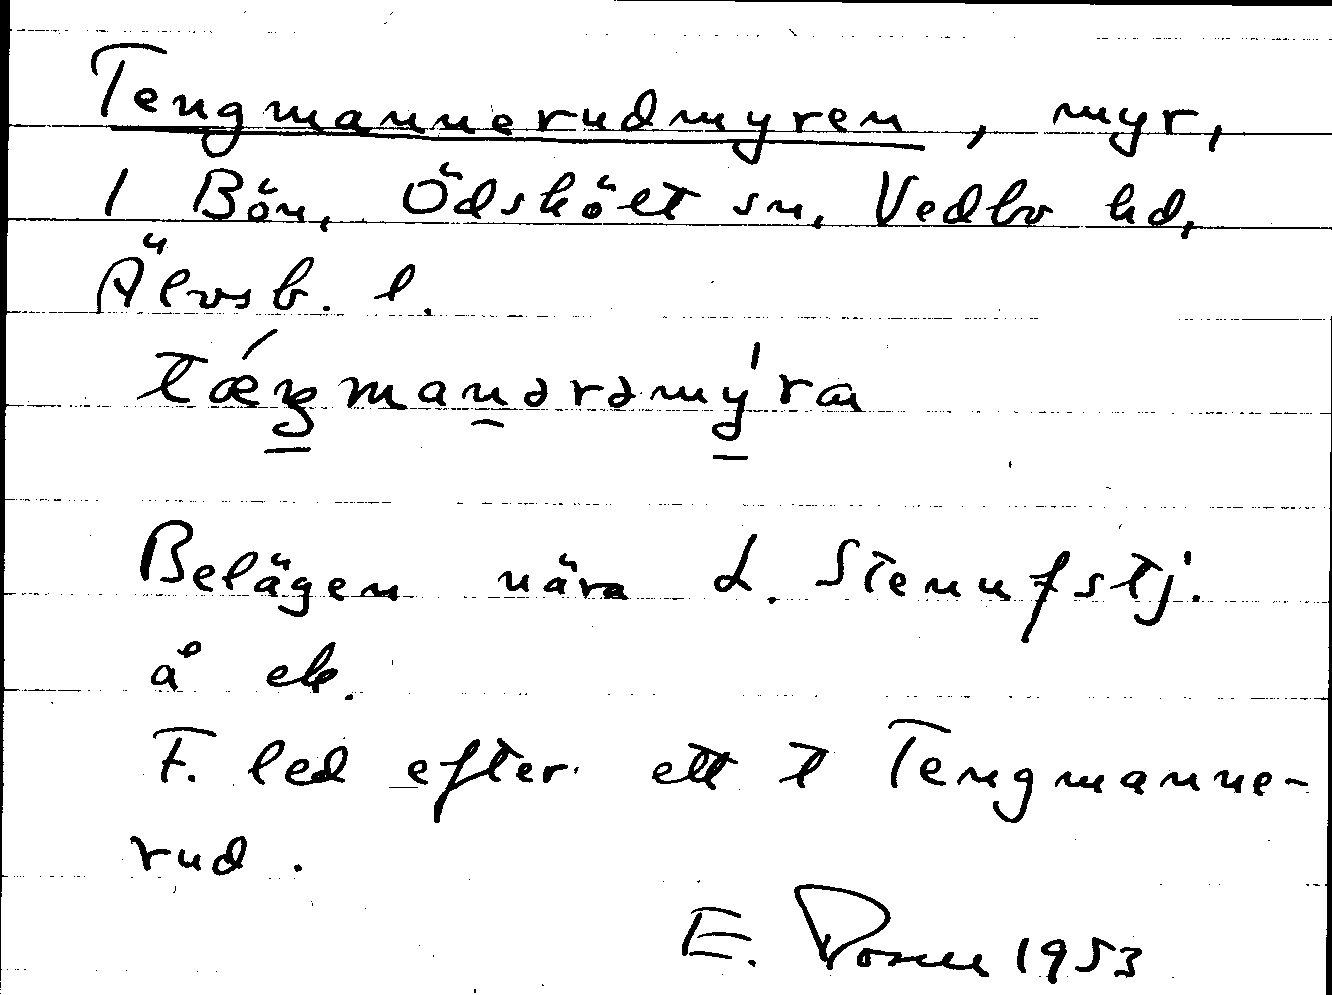 Tengmannerudmyren, myr,
1 Bön, Ödskölt sn, Vedbo hd,
Älvsb. l.
Belägen nära L. Stennfstj.
å ek.
F. led efter ett t Tengmanne-
rud.
E. 1953